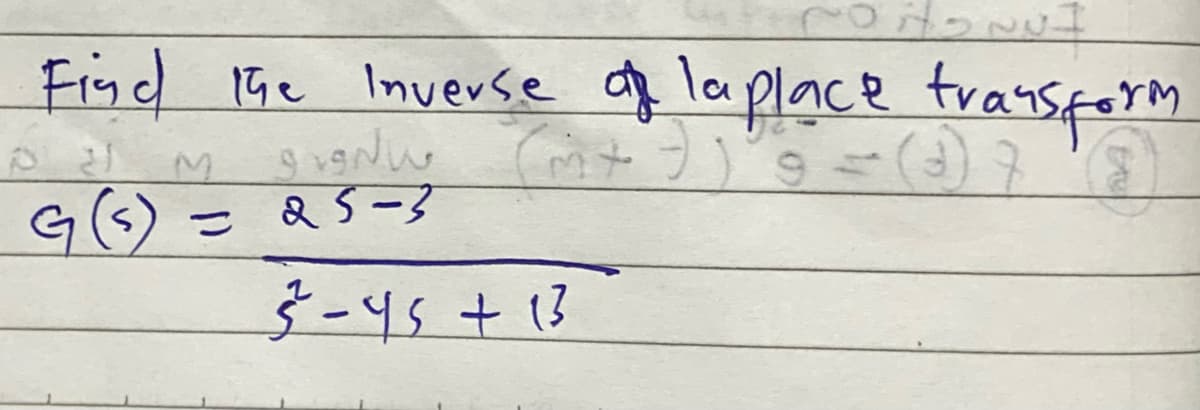 Find the Inverse of laplace transform
G(s) = 2s-3
s²-4s + 13